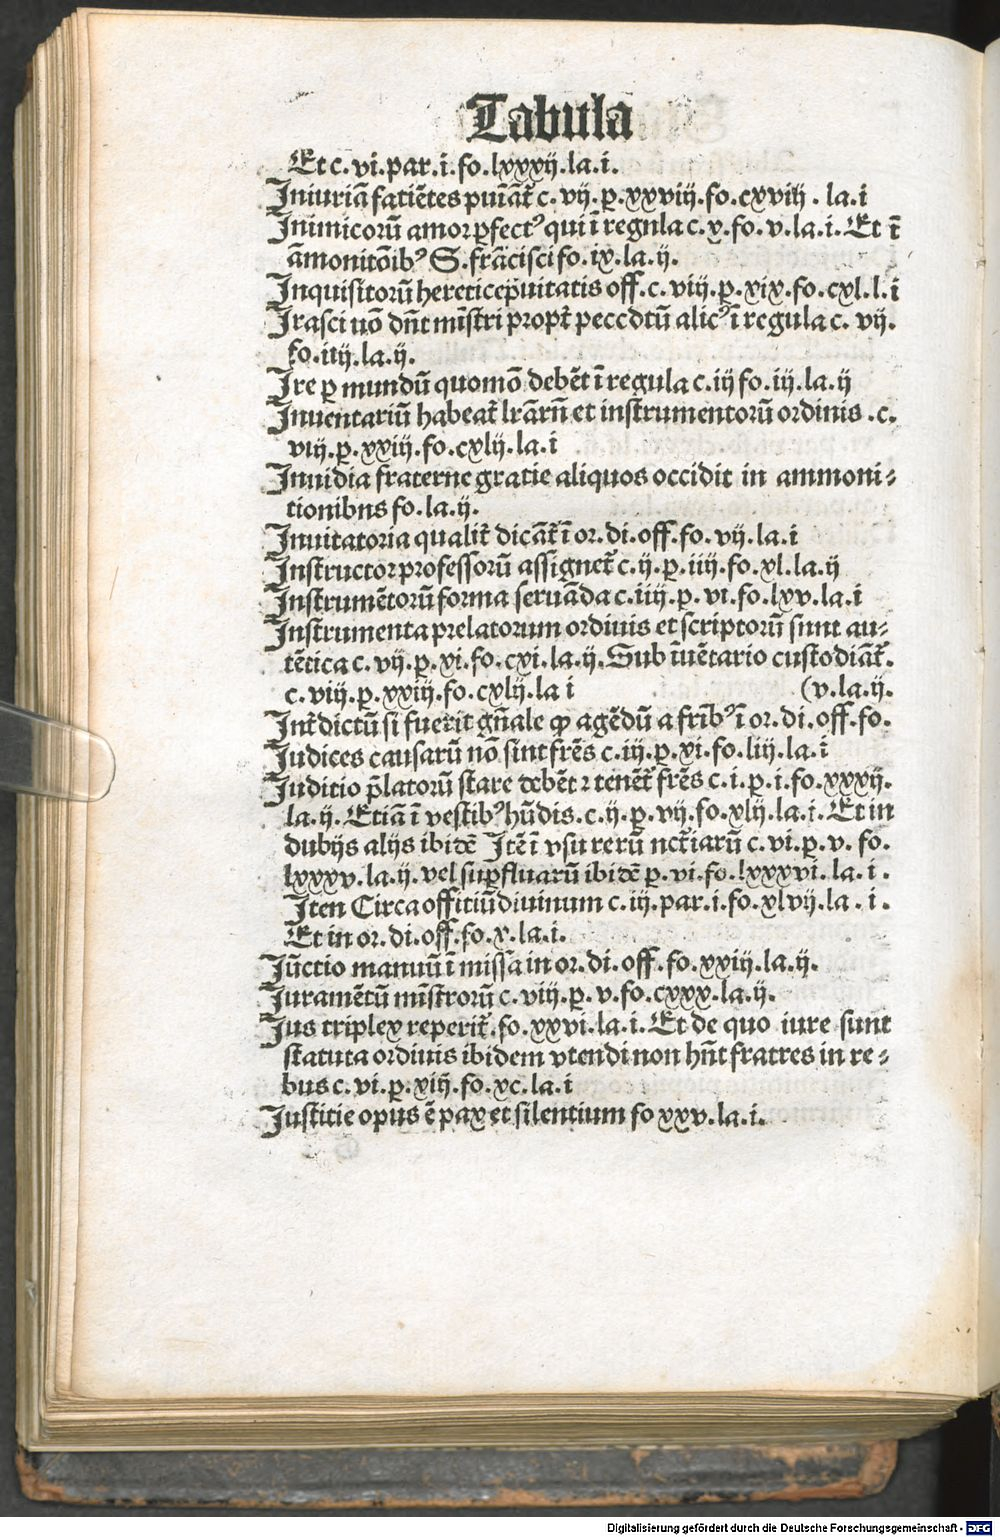 Tabula
Et c. vi. par. i. fo. lxxxij. la. i.
Iniuriā fatiētes puīāt᷑ c. vij. ꝑ. xxviij. fo. cxviij . la. i
Inimicorū amor ꝑfectꝰ qui ī regnla c. x. fo. v. la. i. Et ī
āmonitōibꝰ S. frācisci fo. ix. la. ij.
Inquisitorū heretice p̄uitatis off. c. viij. ꝑ. xix. fo. cxl. l. i
Irasci nō dn̄t mīstri propt᷑ peccdtū alicꝰ ī regula c. vij.
fo. iiij. la. ij.
Ire ꝑ mundū quomō debēt ī regula c. iij fo. iij. la. ij
Inuentariū habeat᷑ lrārn̄ et instrumentorū ordinis . c.
viij. ꝑ. xxiij. fo. cxlij. la. i
Inuidia fraterne gratie aliquos occidit in ammoni⸗
tionibns fo. la. ij.
Inuitatoria qualit᷑ dicāt᷑ ī or. di. off. fo. vij. la. i
Instructor professorū assignet᷑ c. ij. ꝑ. iiij. fo. xl. la. ij
Instrumētorū forma seruāda c. iiij. ꝑ. vi. fo. lxv. la. i
Instrumenta prelatorum ordiuis et scriptorū sunt au⸗
tētica c. vij. ꝑ. xi. fo. cxi. la. ij. Sub īuētario custodiāt᷑.
c. viij. ꝑ. xxiij. fo. cxlij. la i (v. la. ij.
Int᷑dictū si fuerit gn̄ale qͦ agēdū a frībꝰ ī or. di. off. fo.
Iudices causarū nō sint frēs c. iij. ꝑ. xi. fo. liij. la. i
Iuditio p̄latorū stare debēt ꝛ tenēt᷑ frēs c. i. ꝑ. i. fo. xxxij.
la. ij. Etiā ī vestibꝰ hn̄dis. c. ij. ꝑ. vij. fo. xlij. la. i. Et in
dubijs alijs ibidē Itē ī vsu rerū nct᷑iarū c. vi. ꝑ. v. fo.
lxxxv. la. ij. vel suꝑfluarū ibidē ꝑ. vi. fo. lxxxvi. la. i .
Iten Circa offitiū diuinum c. iij. par. i. fo. xlvij. la . i .
Et in or. di. off. fo. x. la. i.
Iūctio manuū ī missa in or. di. off. fo. xxiij. la. ij.
Iuramētū mīstrorū c. viij. ꝑ. v. fo. cxxx. la. ij.
Ius triplex reperit᷑. fo. xxvi. la. i. Et de quo iure sunt
statuta ordiuis ibidem vtendi non hn̄t fratres in re⸗
bus c. vi. ꝑ. xiij. fo. xc. la. i
Iustitie opus ē pax et silentium fo xxv. la. i.
Digitalisierung gefördert durch die Deutsche Forschungsgemeinschaft - DFG